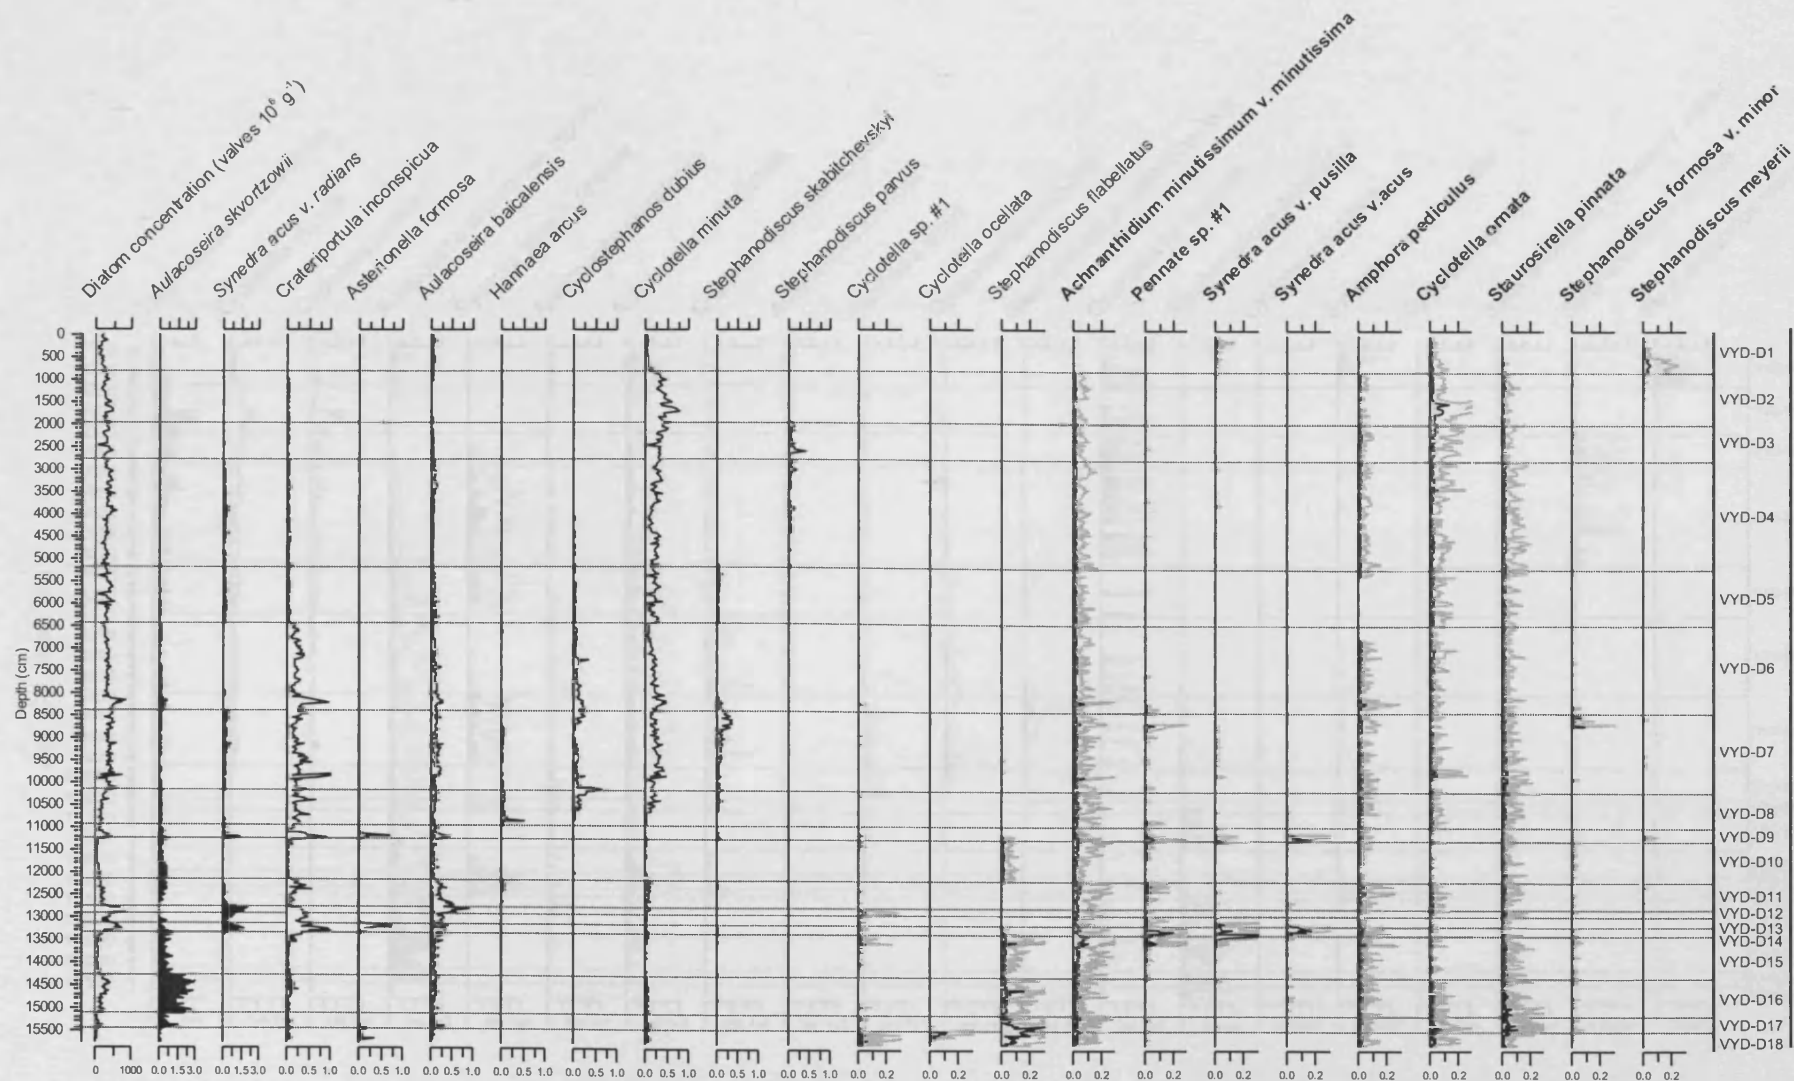 Diatom concentration (valves 10⁶ g⁻¹)
Aulacoseira skvortzowii
Synedra acus v. radians
Crateriportula inconspicua
Asterionella formosa
Aulacoseira baicalensis
Hannaea arcus
Cyclostephanos dubius
Cyclotella minuta
Stephanodiscus skabitchevskyi
Stephanodiscus parvus
Cyclotella sp. #1
Cyclotella ocellata
Stephanodiscus flabellatus
Achnanthidium minutissimum v. minutissima
Pennate sp. #1
Synedra acus v. pusilla
Synedra acus v. acus
Amphora pediculus
Cyclotella ornata
Staurosirella pinnata
Stephanodiscus formosa v. minor
Stephanodiscus meyerii
Depth (cm)
0
500
1000
1500
2000
2500
3000
3500
4000
4500
5000
5500
6000
6500
7000
7500
8000
8500
9000
9500
10000
10500
11000
11500
12000
12500
13000
13500
14000
14500
15000
15500
VYD-D1
VYD-D2
VYD-D3
VYD-D4
VYD-D5
VYD-D6
VYD-D7
VYD-D8
VYD-D9
VYD-D10
VYD-D11
VYD-D12
VYD-D13
VYD-D14
VYD-D15
VYD-D16
VYD-D17
VYD-D18
0 1000 0.0 1.53.0 0.0 1.53.0 0.0 0.5 1.0 0.0 0.5 1.0 0.0 0.5 1.0 0.0 0.5 1.0 0.0 0.5 1.0 0.0 0.5 1.0 0.0 0.5 1.0 0.0 0.5 1.0 0.0 0.2 0.0 0.2 0.0 0.2 0.0 0.2 0.0 0.2 0.0 0.2 0.0 0.2 0.0 0.2 0.0 0.2 0.0 0.2 0.0 0.2 0.0 0.2